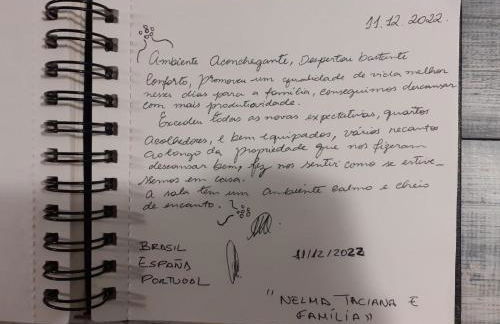 11.12.2022.
Ambiente Aconchegante, Despertou bastante
conforto, promoveu um qualidade de vida melhor
nesses dias para a família, conseguimos descansar
com mais produtividade.
Excedeu todas as novas expectativas, quartos
acolhedores, e bem equipados, vários recantos
ao longo da propriedade que nos fizeram
descansar bem, fez nos sentir como se estive_
ssemos em casa.
A sala tem um ambiente calmo e cheio
de encanto.
BRASIL
ESPAÑA
PORTUGAL
11/12/2022
"NELMA TACIANA E
FAMÍLIA"